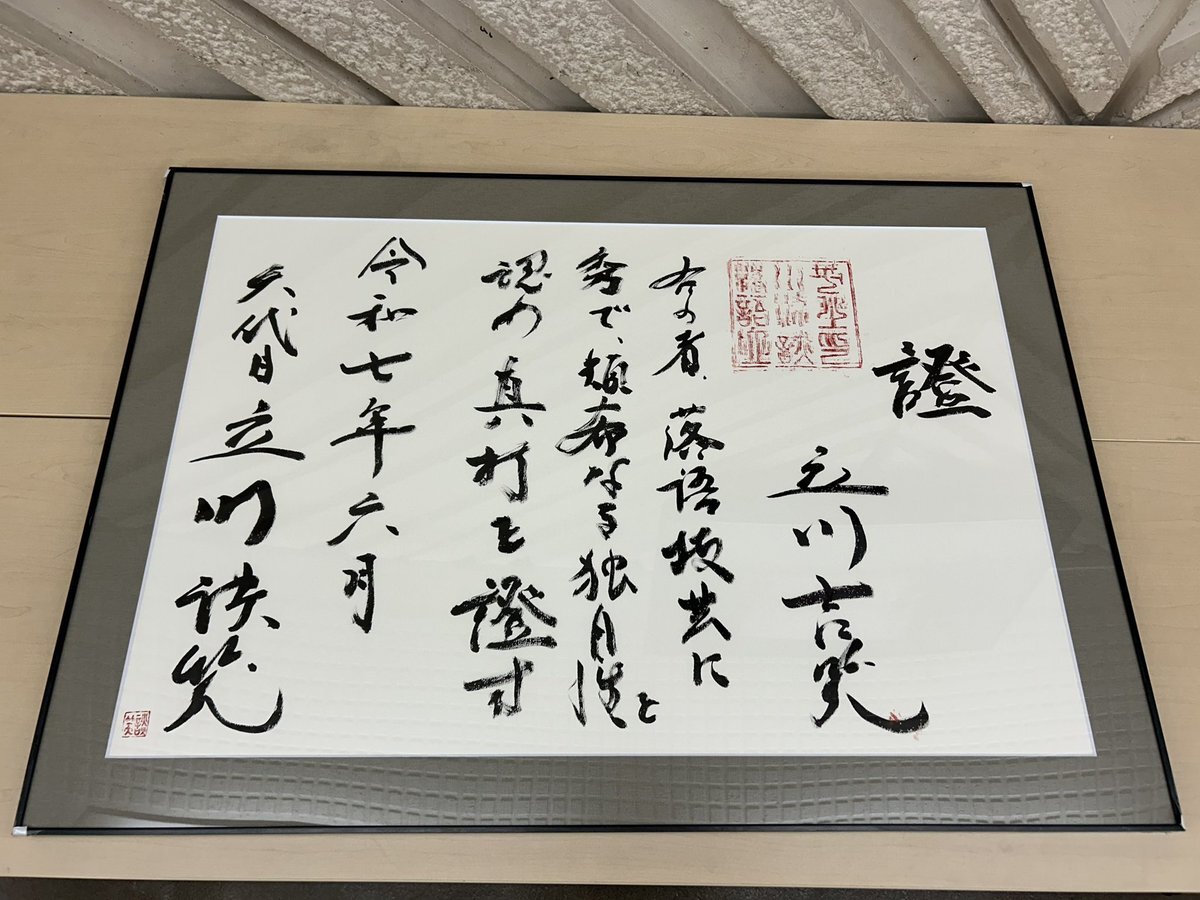 證
立川吉笑
右の者、落語技共に
秀で、類希なる独自性を
認め真打を證す
令和七年六月
六代目立川談笑